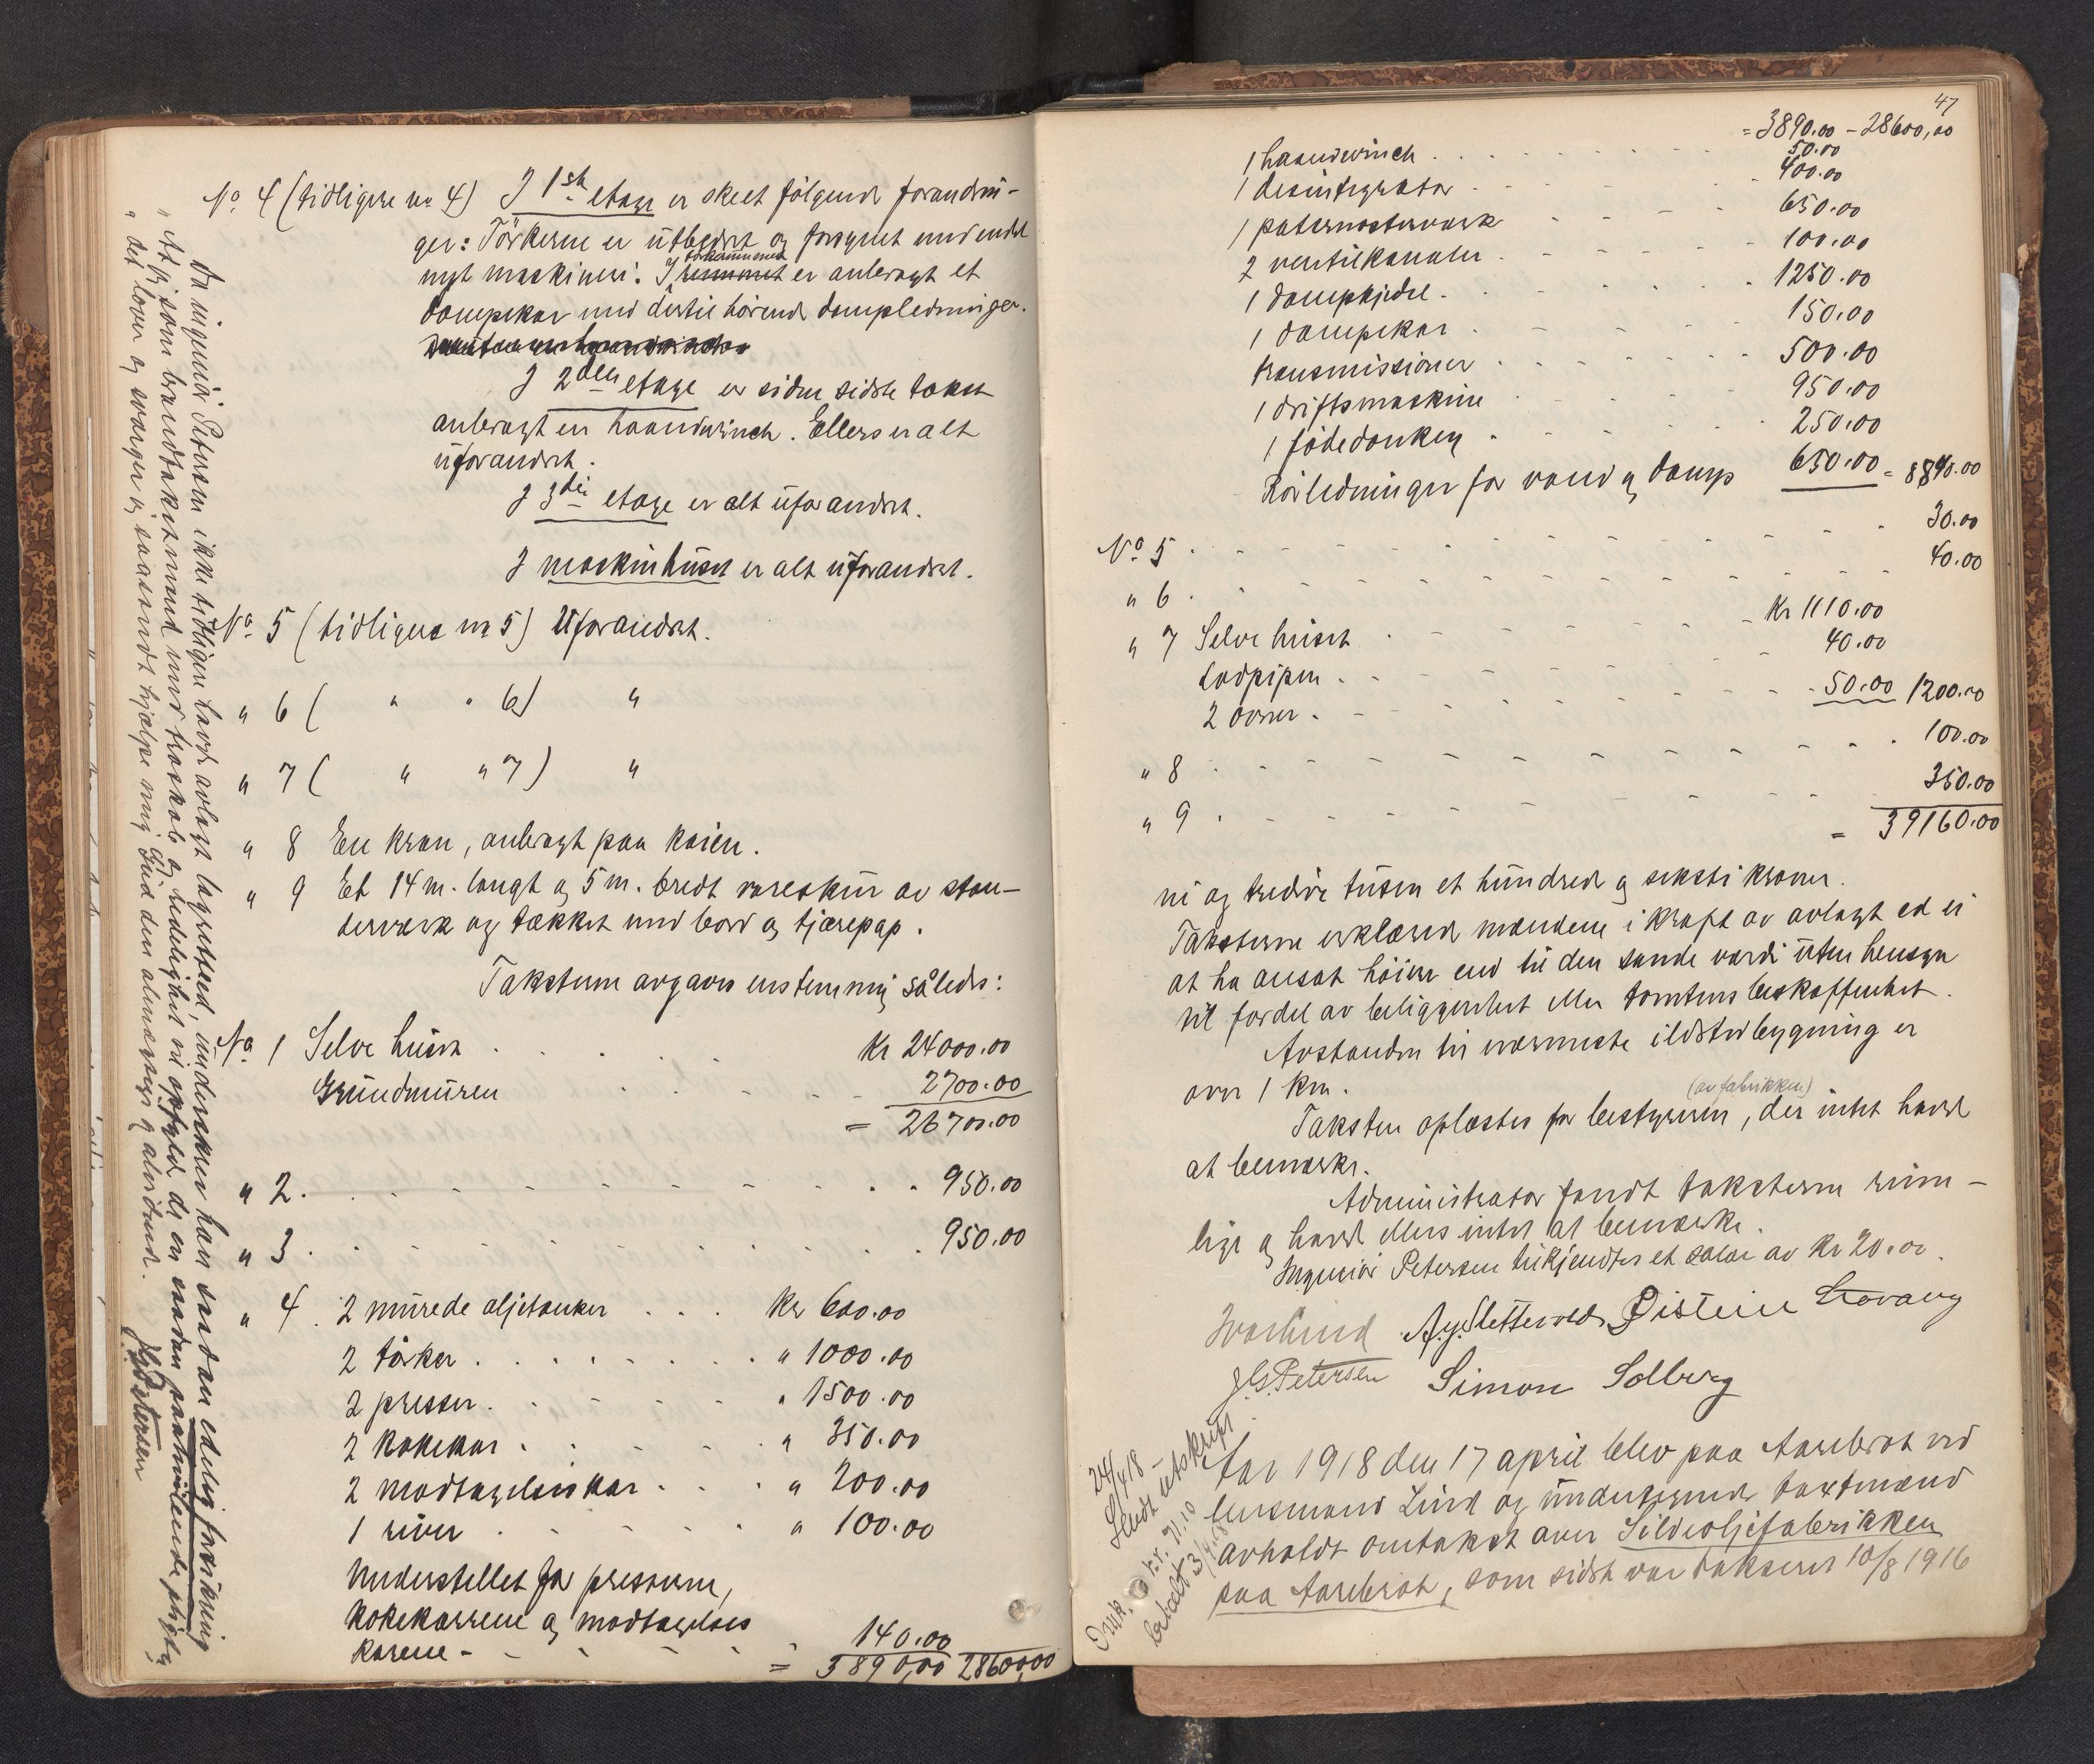 No. 4 (tidligere no 4) I 1ste etage er skeet følgende forandrin-
ger: Törkerne er utbedret og forsynet med endel
nyt maskineri. I törkerummet er anbragt et
dampkar med dertil hörende dampledninger.
I 2den etage er siden sidste takst
anbragt en haandwinch. Ellers er alt
uforandret.
I 3die etage er alt uforandret.
I maskinhuset er alt uforandret.
No. 5 (tidligere no 5) Uforandret.
" 6 ( " " 6) "
" 7 ( " " 7) "
" 8 En kran, anbragt paa kaien.
" 9 Et 14 m. langt og 5 m. bredt vareskur av stan-
derverk og tækket med bord og tjærepap.
Taksterne avgaves enstemmig således:
No. 1 Selve huset . . . . kr 24000.00
Grundmuren . . . 2700.00
= 26700.00
" 2. . . . 950.00
" 3. . . . 950.00
" 4. 2 murede oljetanker . . . kr 600.00
2 törker . . . " 1000.00
2 presser . . . " 1500.00
2 kokekar . . . " 350.00
2 modtagelseskar . . . " 200.00
1 river . . . " 100.00
Understellet for presserne,
kokekarrene og modtagelses
karene - - - 140.00
= 3890,00 28600,00
Da ingeniör Petersen ikke tidligere havde avlagt lagretsed, underskrev han saadan edelig forsikring
" At jeg som brandtakstmand med troskab og redelighet vil opfylde de en saadan paahvilende pligter
" det lover og sværger jeg saasandt hjælpe mig Gud den almægtige og alvidende.
J G Petersen
47
= 3890.00 - 28600,00
1 haandwinch . . . 50.00
1 desintegrator . . . 400.00
1 paternosterverk . . . 650.00
2 ventilkanaler . . . 100.00
1 dampkjedel . . . 1250.00
1 dampkar . . . 150.00
transmissioner . . . 500.00
1 driftsmaskine . . . 950.00
1 födedonkey . . . 250.00
Rörledninger for vand og damp 650.00 = 8840.00
No. 5 . . . 30.00
" 6 . . . 40.00
" 7 Selve huset . . . Kr 1110.00
Lodpipen . . . 40.00
2 ovner . . . 50.00 1200.00
" 8 . . . 100.00
" 9 . . . 350.00
= 39160.00
ni og tredive tusen et hundrede og seksti kroner.
Taksterne erklærede mændene i kraft av avlagt ed ei
at ha ansat höiere end til den sande værdi uten hensyn
til fordel av beliggenhet eller tomtens beskaffenhet.
Avstanden til nærmeste ildstedbygning er
over 1 km.
(av fabrikken)
Taksten oplæstes for bestyreren, der intet havde
at bemærke.
Administrator fandt taksterne rime-
lige og havde ellers intet at bemærke.
Ingeniör Petersen tilkjendtes et salær av kr 20.00.
A. y. Slettevold Øistein Hovang
J. G. Petersen Simon Solberg
24/4 18
Sendt utskrift
betalt
Aar 1918 den 17 april blev paa Aarebrot ved
lensmand Lind og undertegnede takstmænd
avholdt omtakst over Sildeoljefabrikken
paa Aarebrot, som sidst var takseret 10/8 1916